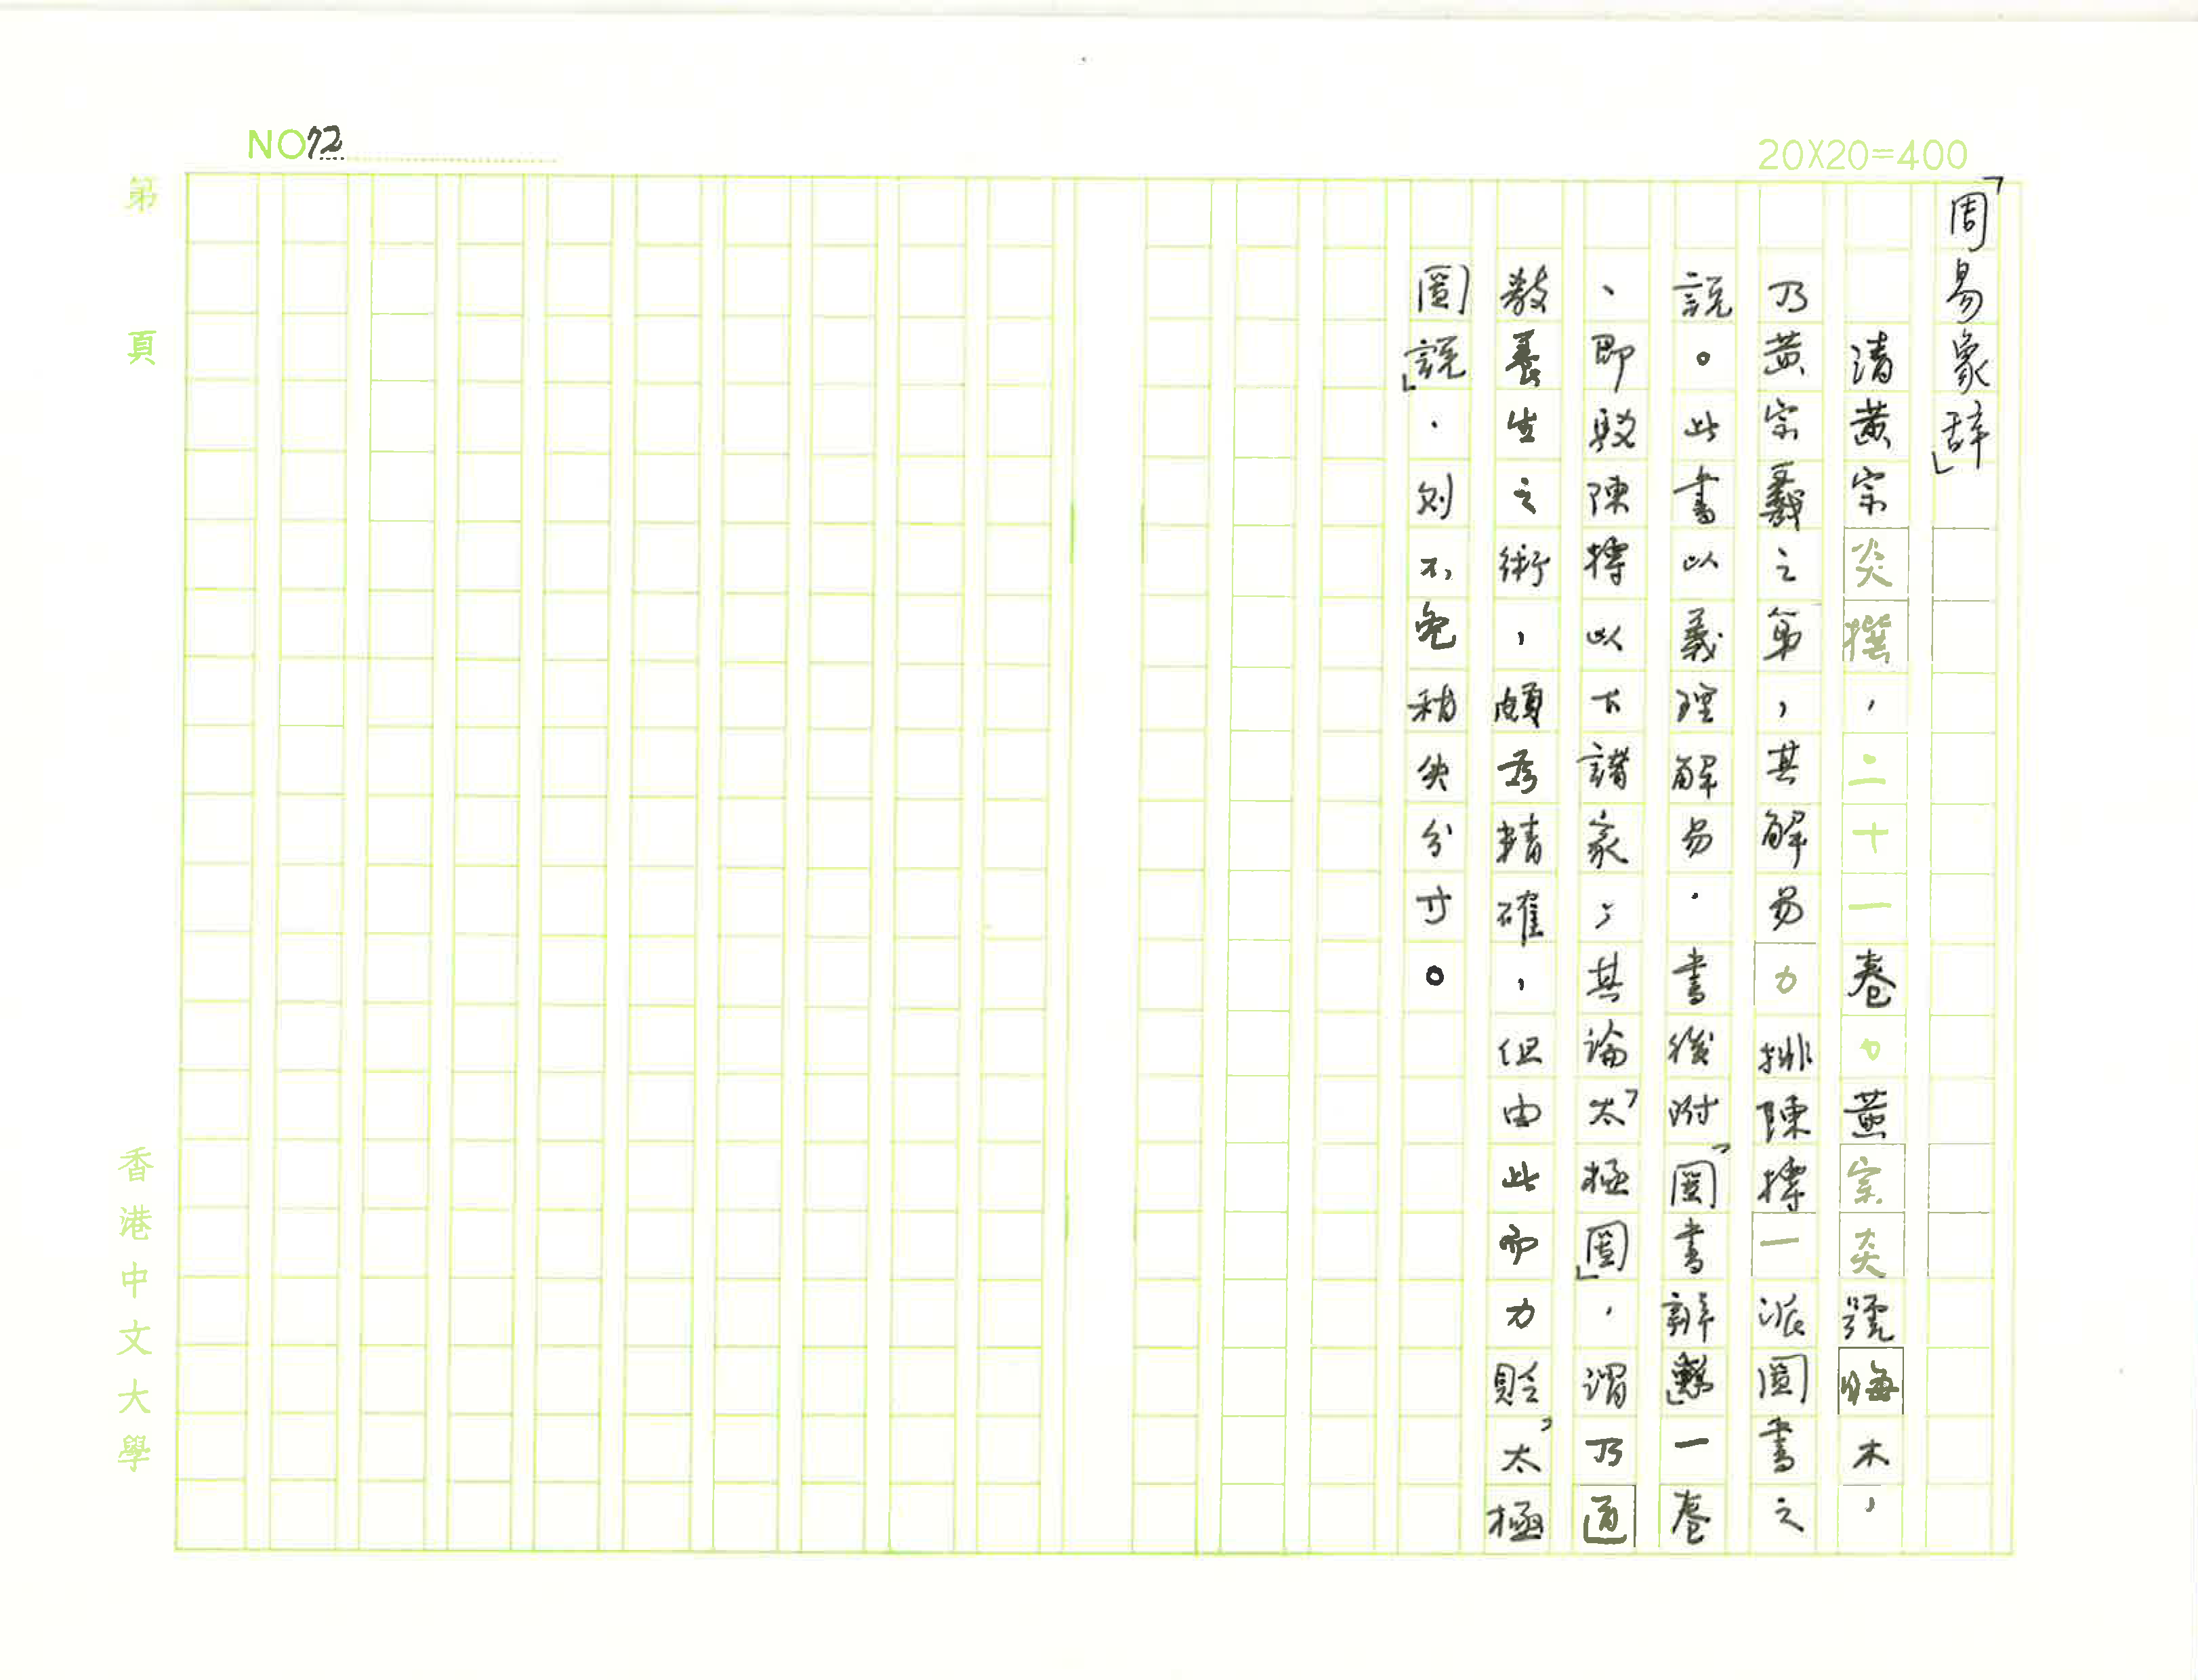 NO 72
20X20=400
「周易象辞」
清黃宗炎撰，二十一卷。黃宗炎號晦木，
乃黃宗羲之弟，其解易力排陳摶一派圖書之
說。此書以義理解易．書後附「圖書辯惑」一卷
、即駁陳摶以下諸家；其論「太極圖」，謂乃道
教養生之術，頗為精確，但由此而力貶「太極
圖說」．則不免稍失分寸。
第 頁
香港中文大學